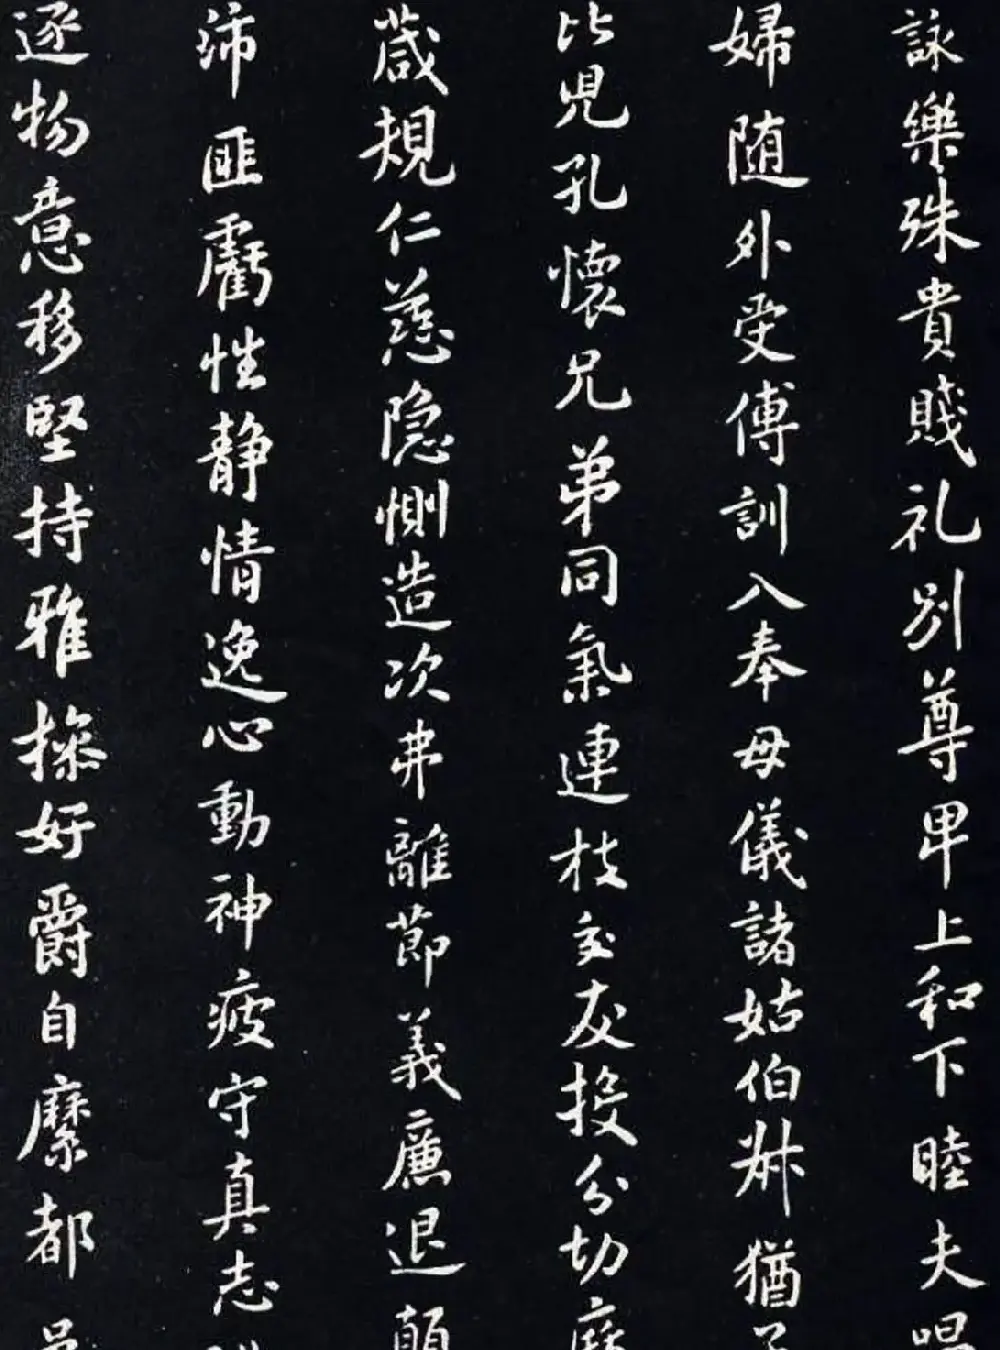 詠樂殊貴賤礼別尊卑上和下睦夫唱
婦随外受傅訓入奉母儀諸姑伯叔猶子
比兒孔懷兄弟同氣連枝交友投分切磨
葴規仁慈隐惻造次弗離節義廉退顛
沛匪虧性静情逸心動神疲守真志
逐物意移堅持雅操好爵自縻都